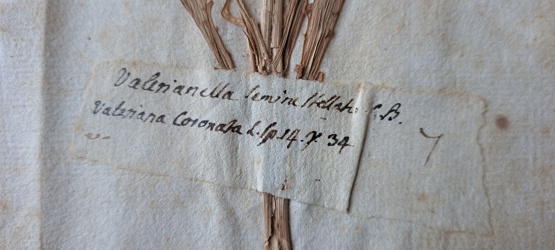 Valerianella semine stellato C. B.
Valeriana Coronata L. Sp. 14. p. 34
7